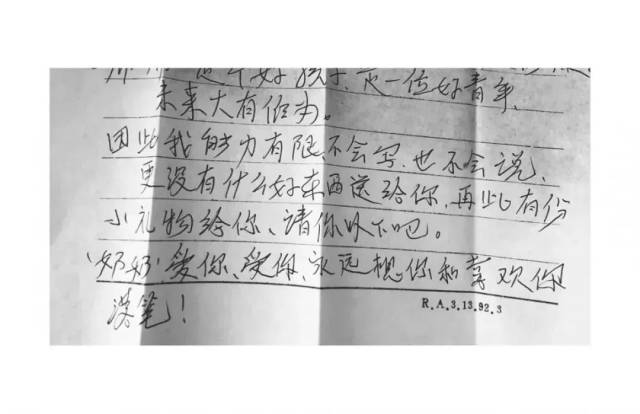 是个好孩子,是一位好青年,
未来大有作为。
因此我能力有限、不会写、也不会说、
更没有什么好东西送给你,再此有份
小礼物给你、请你收下吧。
'奶奶'爱你、爱你、永远想你和喜欢你
R.A.3.13.92.3
笔!